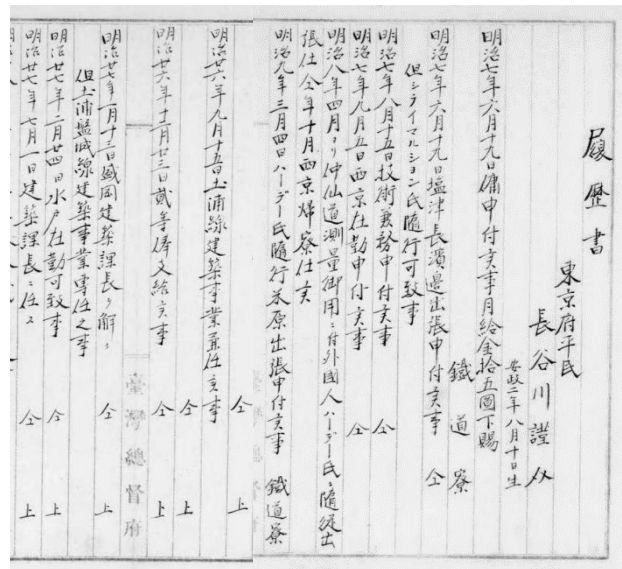 履歴書
東京府平民
長谷川謹介
安政二年八月十日生
明治七年六月十九日傭申付亥事月給金拾五圓下賜
鐵道寮
明治七年六月十九日塩津長濱邊出張申付亥事 仝
但シライマルション氏隨行可致事
明治七年八月十五日技術兼務申付亥事 仝
明治七年九月五日西京在勤申付亥事 仝
明治八年四月ヨリ仲仙道測量御用ニ付外國人ハーデー氏ニ隨従出
張仕仝年十月西京帰寮仕亥
明治九年三月四日ハーデー氏隨行米原出張申付亥事 鐵道寮
仝 上
明治廿六年九月十五日土浦線建築事業兼任亥事
仝 上
明治廿六年十二月廿三日貳等俸支給亥事 仝 上
臺灣總督府
明治廿七年一月十三日盛岡建築課長ヲ解ニ 仝 上
但土浦盤城線建築事業専任之事
明治廿七年二月廿四日水戸在勤可致事 仝 上
明治廿七年七月一日建築課長ニ任ス 仝 上